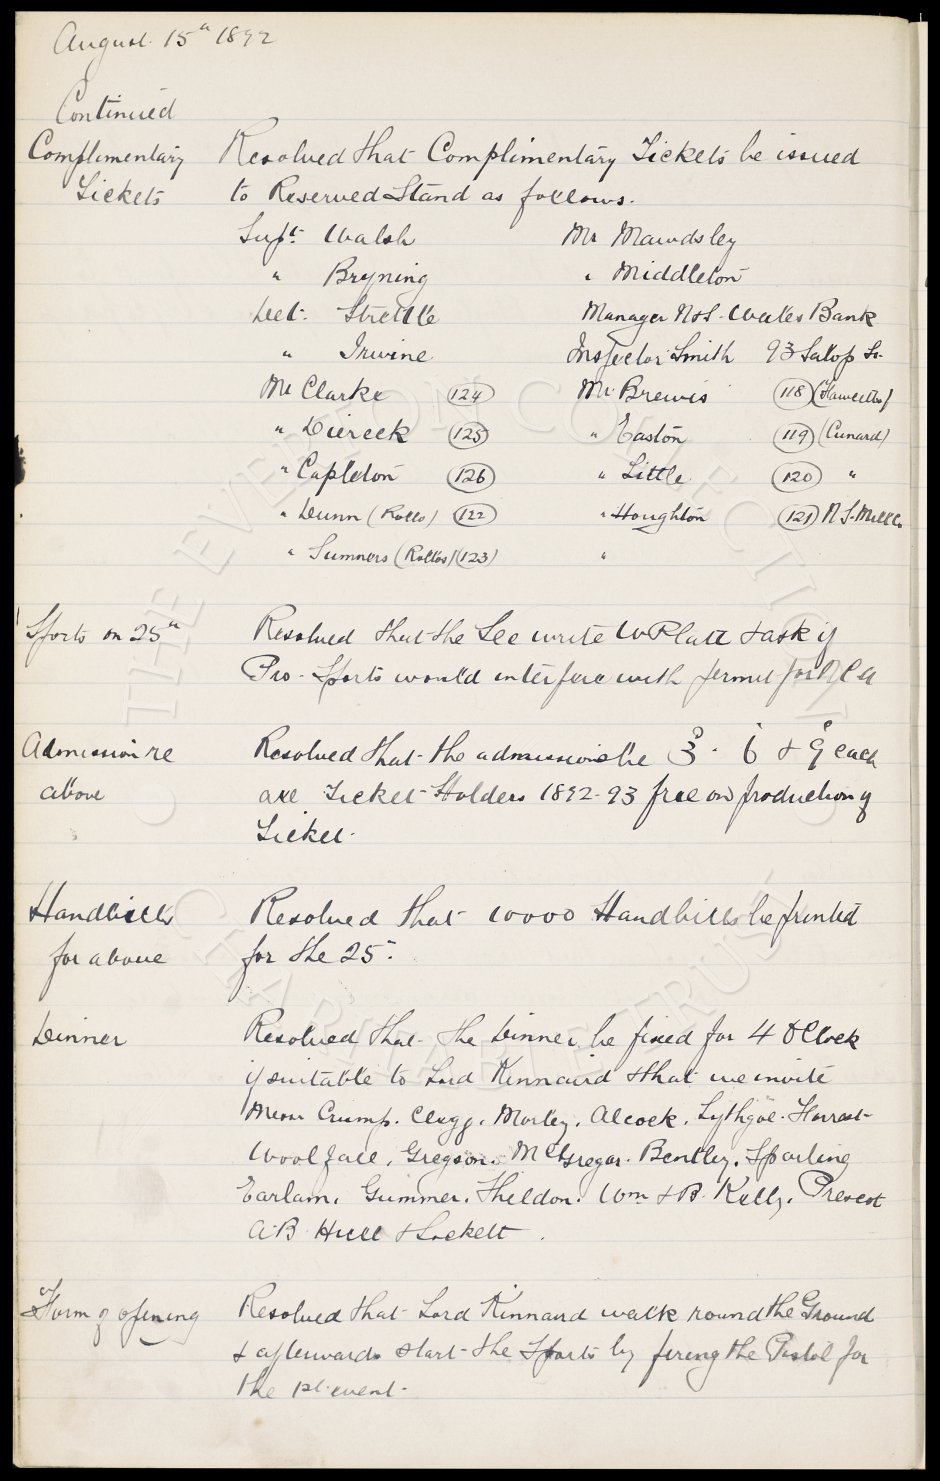 August 15th 1892
Continued
Complimentary Tickets
Resolved that Complimentary Tickets be issued
to Reserved Stand as follows.
Supt. Walsh Mr Mawdsley
" Bryning " Middleton
Det. Strettle Manager N & S. Wales Bank
" Irwine Inspector Smith 93 Salop St.
Mr Clarke 124 Mr. Brewis 118
" Diereck 125 " Easton 119 (Cunard)
" Capleton 126 " Little 120 "
" Dunn (Rollo) 122 " Houghton 121
" Sumners (Rollos) 123 "
Sports on 25th
Resolved that the Sec write W Platt & ask if
Pro. Sports would interfere with permit for
Admission re above
Resolved that the admission be 3d. 6d & 9d each
are Ticket Holders 1892-93 free on production of
Ticket.
Handbills for above
Resolved that 10000 Handbills be printed
for the 25th.
Dinner
Resolved that the Dinner be fixed for 4 O Clock
if suitable to Lord Kinnaird & that we invite
Messr Crump. Clegg. Morley. Alcock. Lythgoe. Horrast
Woolfall. Gregson. McGregor. Bentley. Sparling
Earlam. Gunner. Sheldon. Wm & B. Kelly. Prescot
A.B. Hull & Lockett.
Form of opening
Resolved that Lord Kinnard walk round the Ground
& afterwards start the Sports by firing the Pistol for
the 1st event.
THE EVERTON COLLECTION
CHARITABLE TRUST